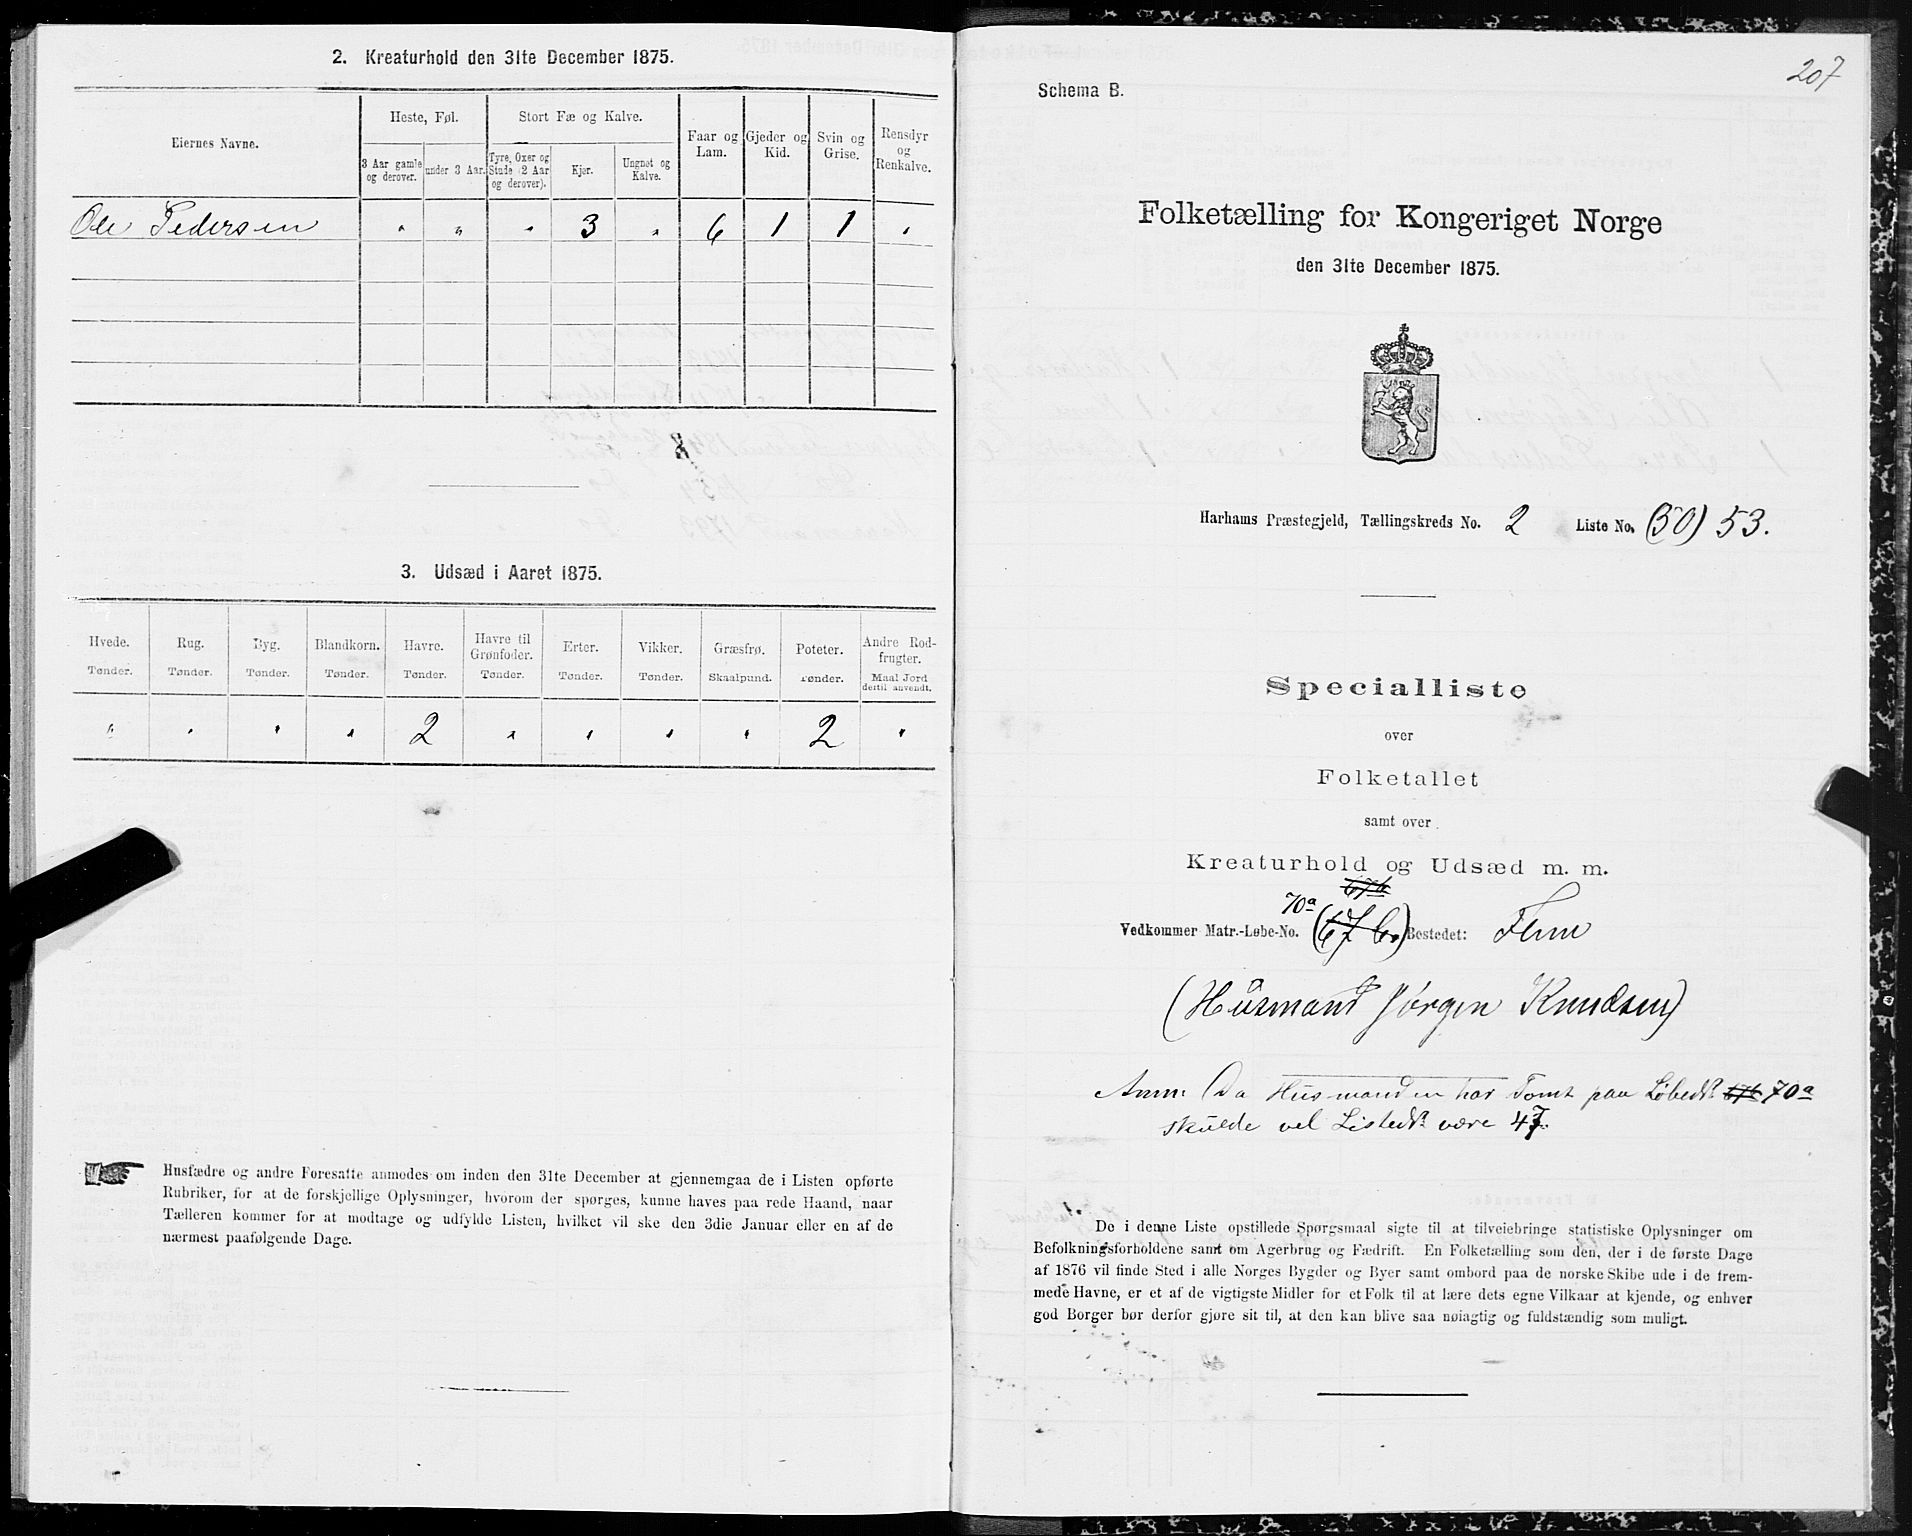 2. Kreaturhold den 31te December 1875.
Eiernes Navne.
Heste, Føl.
Stort Fæ og Kalve.
Faar og Lam.
Gjeder og Kid.
Svin og Grise.
Rensdyr og Renkalve.
3 Aar gamle og derover.
under 3 Aar.
Tyre, Oxer og Stude (2 Aar og derover).
Kjør.
Ungnøt og Kalve.
Ole Pedersen " " " 3 " 6 1 1 "
3. Udsæd i Aaret 1875.
Hvede. Rug. Byg. Blandkorn. Havre. Havre til Grønfoder. Erter. Vikker. Græsfrø. Poteter. Andre Rodfrugter.
Tønder. Tønder. Tønder. Tønder. Tønder. Tønder. Tønder. Tønder. Skaalpund. Tønder. Maal Jord dertil anvendt.
" " " " 2 " " " " 2 "
Husfædre og andre Foresatte anmodes om inden den 31te December at gjennemgaa de i Listen opførte
Rubriker, for at de forskjellige Oplysninger, hvorom der spørges, kunne haves paa rede Haand, naar
Tælleren kommer for at modtage og udfylde Listen, hvilket vil ske den 3die Januar eller en af de
nærmest paafølgende Dage.
207
Schema B.
Folketælling for Kongeriget Norge
den 31te December 1875.
Harhams Præstegjeld, Tællingskreds No. 2 Liste No. (50) 53.
Specialliste
over
Folketallet
samt over
Kreaturhold og Udsæd m. m.
67b
70a
Vedkommer Matr.-Løbe-No. (67 b.) Bostedet: Flem
(Husmand Jørgen Knudsen)
Anm: Da Husmanden har Tomt paa LøbeNo 67b 70a
skulde vel ListeNo være 47.
De i denne Liste opstillede Spørgsmaal sigte til at tilveiebringe statistiske Oplysninger om
Befolkningsforholdene samt om Agerbrug og Fædrift. En Folketælling som den, der i de første Dage
af 1876 vil finde Sted i alle Norges Bygder og Byer samt ombord paa de norske Skibe ude i de frem-
mede Havne, er et af de vigtigste Midler for et Folk til at lære dets egne Vilkaar at kjende, og enhver
god Borger bør derfor gjøre sit til, at den kan blive saa nøiagtig og fuldstændig som muligt.